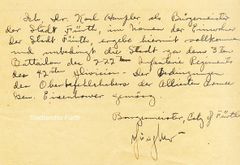 Ich, Dr. Karl Häupler als Bürgermeister
der Stadt Fürth, im Namen der Einwohner
der Stadt Fürth, ergebe hiermit vollkommen
und unbedingt die Stadt zu dem 3ten
Battalion des 222ten Infanterie Regiments
des 42ten Division. Der Bedingungen
des Oberbefehlshabers der Allierten Armee
Gen. Eisenhower gemäss
Burgermeister, City of Fürth
Stadtarchiv Fürth